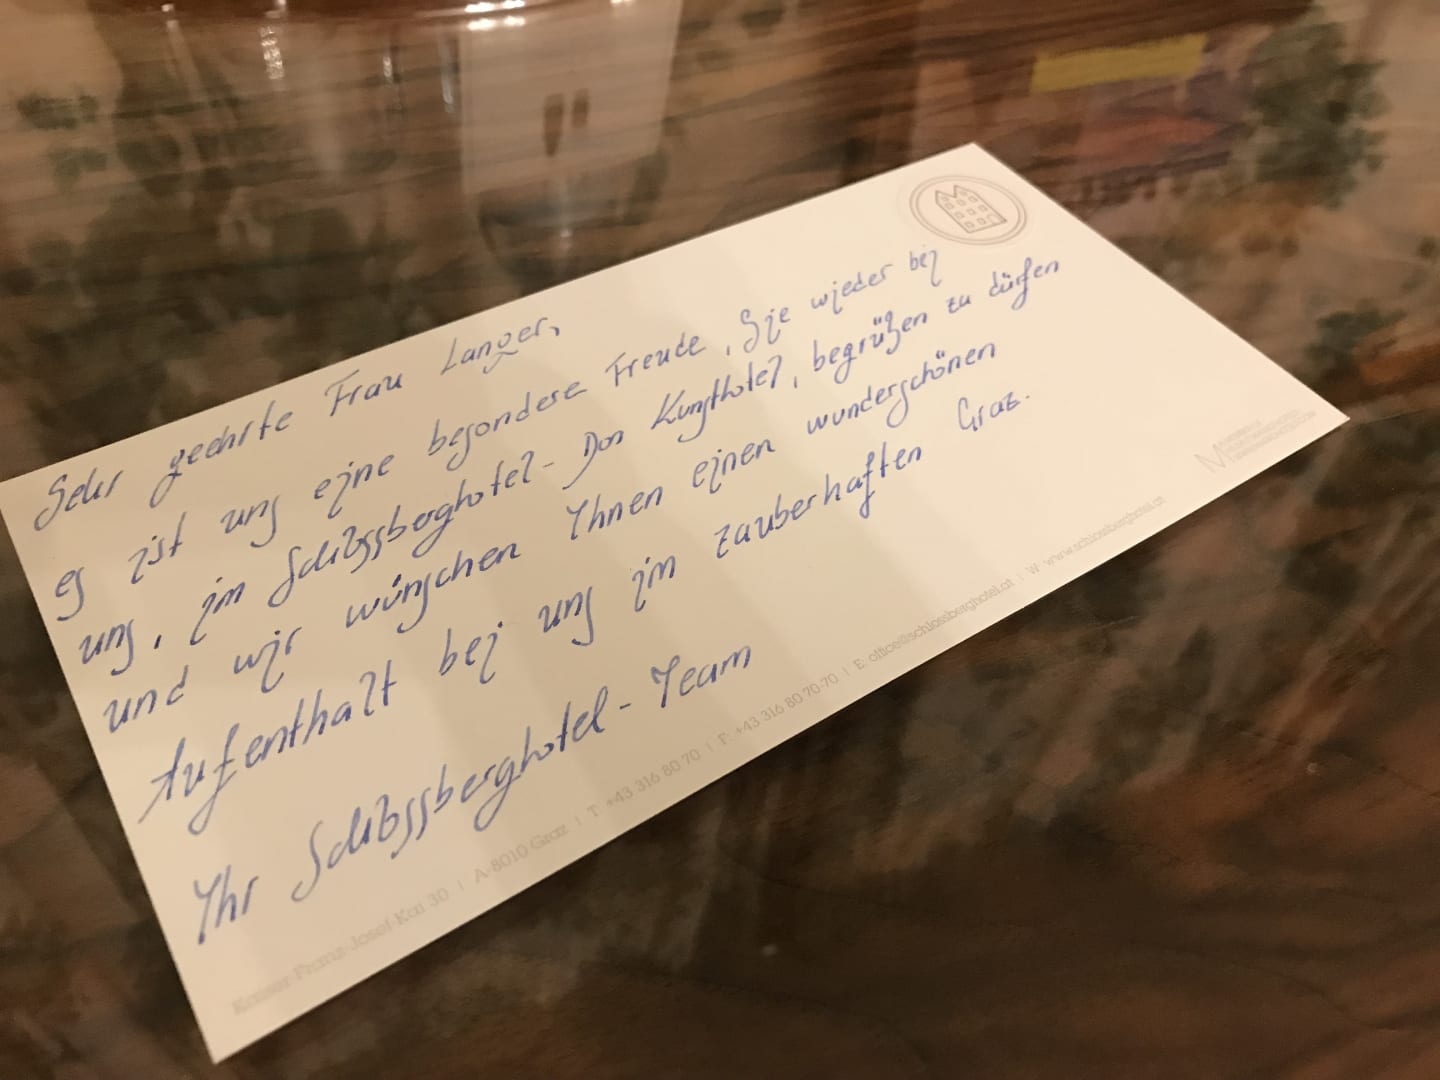 Sehr geehrte Frau Langer,
es ist uns eine besondere Freude, Sie wieder bei
uns, im Schlossberghotel - Das Kunsthotel, begrüßen zu dürfen
und wir wünschen Ihnen einen wunderschönen
Aufenthalt bei uns im zauberhaften Graz.
Ihr Schlossberghotel - Team
Kaiser-Franz-Josef-Kai 30 | A-8010 Graz | T: +43 316 80 70 | F: +43 316 80 70-70 | E: office@schlossberghotel.at | W: www.schlossberghotel.at